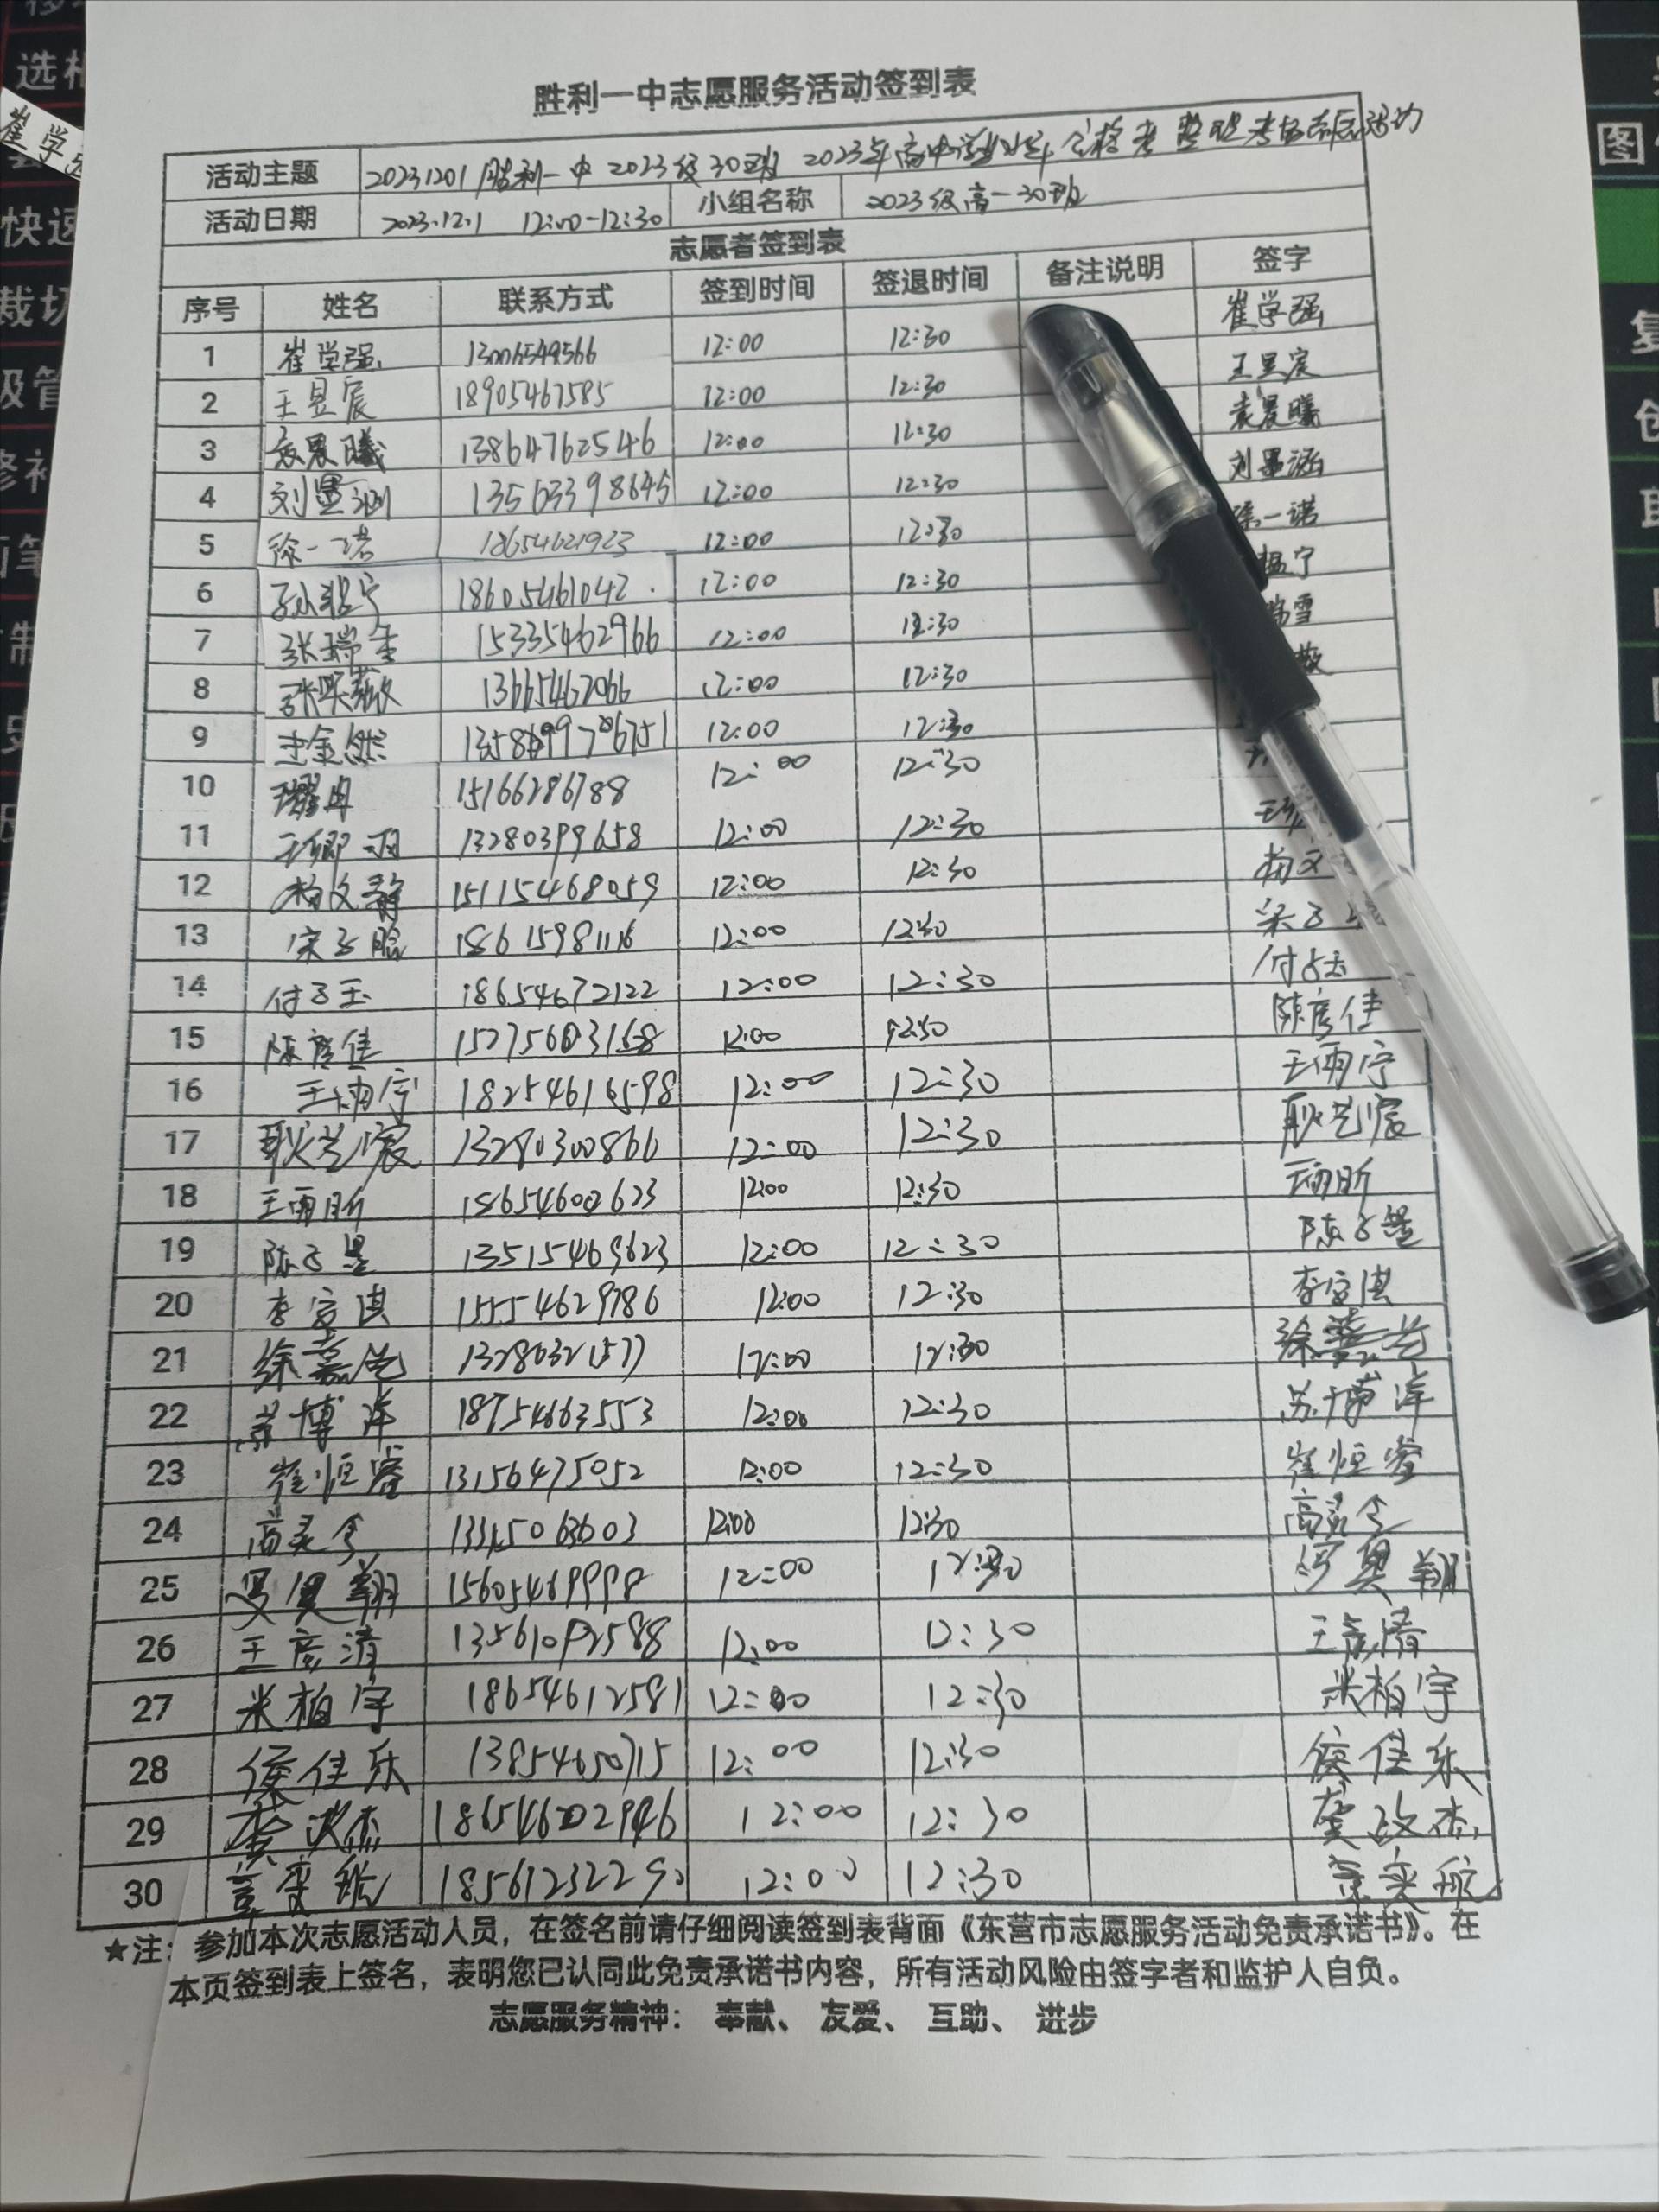 胜利一中志愿服务活动签到表
活动主题 20231201胜利一中2023级30班 2023年高中学业水平合格考 整理考场志愿活动
活动日期 2023.12.1 12:00-12:30 小组名称 2023级高一30班
志愿者签到表
序号 姓名 联系方式 签到时间 签退时间 备注说明 签字
1 崔学强 13006549566 12:00 12:30 崔学强
2 王昱宸 18905467585 12:00 12:30 王昱宸
3 袁晨曦 13864762546 12:00 12:30 袁晨曦
4 刘墨涵 13563398645 12:00 12:30 刘墨涵
5 徐一诺 18654621923 12:00 12:30 徐一诺
6 18605461042 12:00 12:30 宁
7 张瑞雪 15335462966 12:00 12:30 瑞雪
8 13665462066 12:00 12:30
9 12:00 12:30
10 15166286788 12:00 12:30
11 13280399658 12:00 12:30
12 杨文静 15115468059 12:00 12:30 杨文
13 18615981116 12:00 12:30
14 付子玉 18654672122 12:00 12:30 付子玉
15 陈彦佳 12:00 12:30 陈彦佳
16 王雨宁 18254616598 12:00 12:30 王雨宁
17 耿艺宸 13280300866 12:00 12:30 耿艺宸
18 王雨昕 12:00 12:30 王雨昕
19 陈子墨 13515469623 12:00 12:30 陈子墨
20 15554629786 12:00 12:30
21 徐嘉艺 13280321577 12:00 12:30 徐嘉艺
22 苏博洋 18754663553 12:00 12:30 苏博洋
23 崔恒睿 13156475052 12:00 12:30 崔恒睿
24 高灵令 12:00 12:30 高灵令
25 15605469998 12:00 12:30
26 王彦清 13561092588 12:00 12:30 王彦清
27 米柏宇 18654612581 12:00 12:30 米柏宇
28 侯佳乐 13854650715 12:00 12:30 侯佳乐
29 18654602946 12:00 12:30 龚政杰
30 12:00 12:30
★注：参加本次志愿活动人员，在签名前请仔细阅读签到表背面《东营市志愿服务活动免责承诺书》。在
本页签到表上签名，表明您已认同此免责承诺书内容，所有活动风险由签字者和监护人自负。
志愿服务精神： 奉献、 友爱、 互助、 进步
崔学
快速
裁切